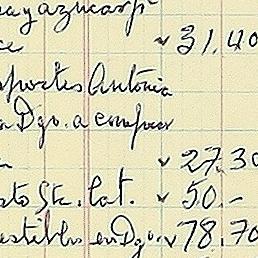 y azucar pª
ce ✓ 31.40
sportes Antonia
a Dgo. a comprar
✓ 27.30
sto Sta. Cat. ✓ 50.-
estibles en Dgo. ✓ 78.70